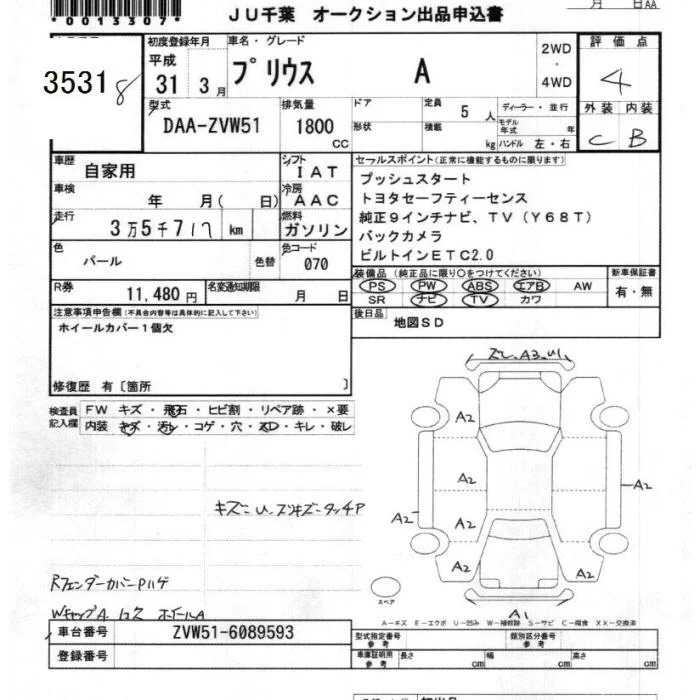 *0013307*
月 日AA
JU千葉 オークション出品申込書
35318
初度登録年月
平成
31 3月
車名・グレード
プリウス A
2WD
・
4WD
評価点
4
外装 内装
C B
型式
DAA-ZVW51
排気量
1800
CC
ドア
形状
定員 5 人
積載 kg
ディーラー・並行
モデル年式 年
ハンドル 左・右
車歴
自家用
車検
年 月( 日)
走行
3万5千717 km
色
パール
色替
シフト
IAT
冷房
AAC
燃料
ガソリン
色コード
070
セールスポイント(正常に機能するものに限ります)
プッシュスタート
トヨタセーフティーセンス
純正9インチナビ、TV(Y68T)
バックカメラ
ビルトインETC2.0
R券
11,480円
名変通知期限
月 日
装備品(純正品に限り○をつけてください)
PS PW ABS エアB AW
SR ナビ TV カワ
新車保証書
有・無
注意事項申告欄(不具合内容等は具体的に記入して下さい)
ホイールカバー1個欠
修復歴 有〔箇所 〕
後日品
地図SD
検査員
記入欄
FW キズ・飛石・ヒビ割・リペア跡・×要
内装 キズ・汚レ・コゲ・穴・スレ・キレ・破レ
A3.U1
A2
A2
A2
A2
A2
A2
A2
A1
スペア
RフェンダーカバーPハゲ
A-キズ E-エクボ U-凹み W-補修跡 S-サビ C-腐食 XX-交換済
車台番号
ZVW51-6089593
登録番号
型式指定番号
参考
類別区分番号
参考
車庫証明用
参考
長さ cm
幅 cm
高さ cm